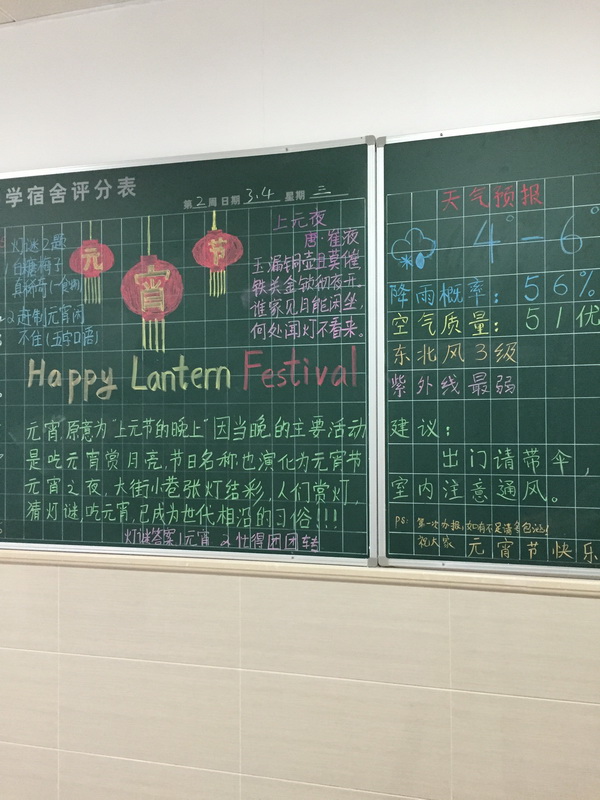 学宿舍评分表
第2周 日期 3.4 星期 三
灯谜2题
白糖梅子
不住(五字口语)
元
宵
节
上元夜
唐·崔液
玉漏铜壶且莫催,
铁关金锁彻夜开。
谁家见月能闲坐,
何处闻灯不看来。
Happy Lantern Festival
元宵,原意为"上元节的晚上"因当晚的主要活动
是吃元宵赏月亮,节日名称也演化为元宵节
元宵之夜,大街小巷张灯结彩,人们赏灯,
猜灯谜,吃元宵,已成为世代相沿的习俗!!!
灯谜答案1元宵 2.忙得团团转
天气预报
4°-6°
降雨概率:56%
空气质量:51优
东北风3级
紫外线最弱
建议:
出门请带伞,
室内注意通风。
PS: 第一次办报,如有不足请多包涵!
祝大家 元宵节快乐